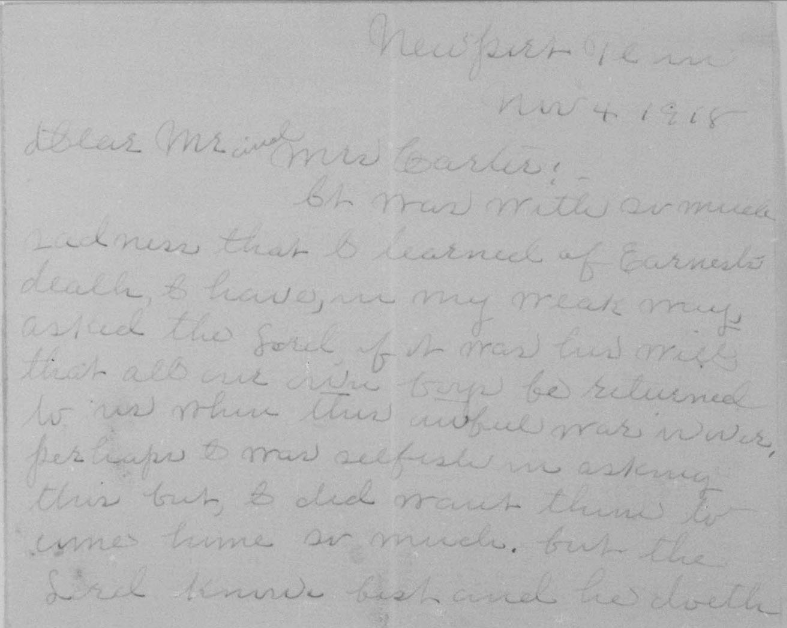 Newport Tenn
Nov 4 1918
Dear Mr and Mrs Carter:-
It was with so much
sadness that I learned of Earnests
death, I have, in my weak way,
asked the Lord if it was his will
that all our own boys be returned
to us when this awful war is over,
perhaps I was selfish in asking
this but, I did want them to
come home so much. but the
Lord knows best and he doeth